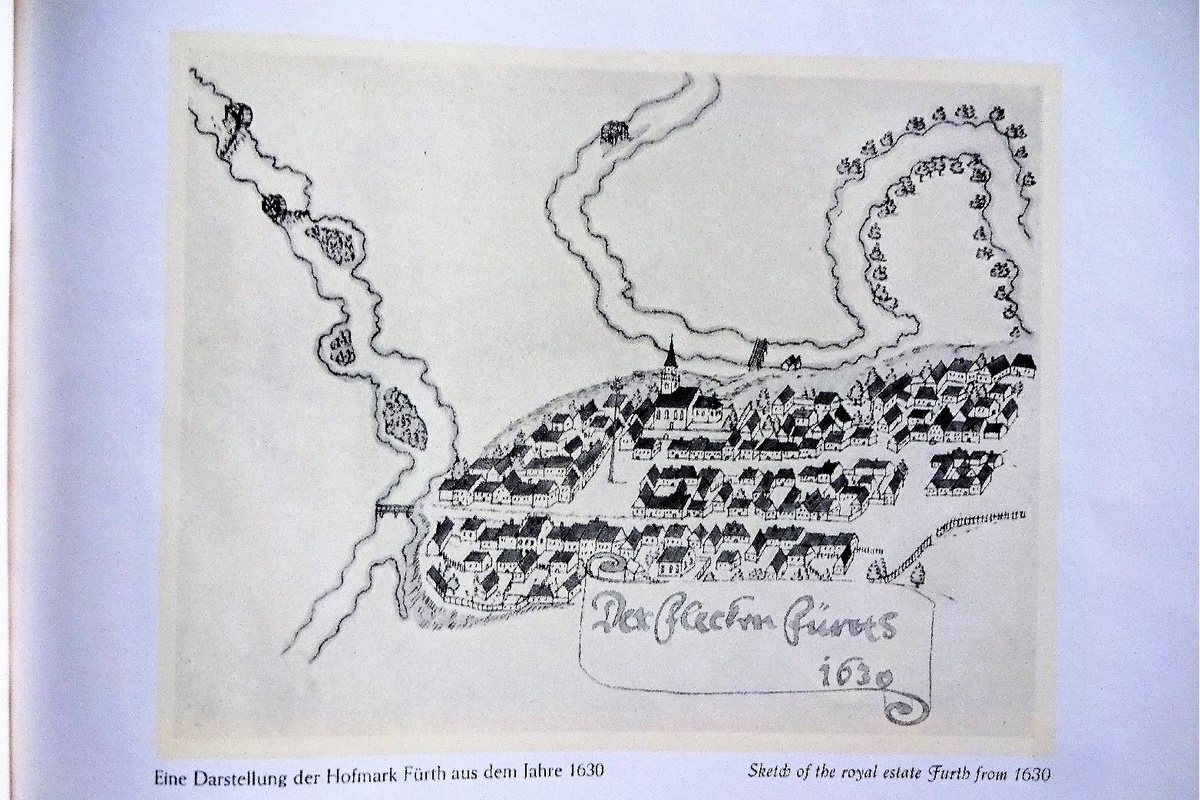 Der Flecken Fürth
1630
Eine Darstellung der Hofmark Fürth aus dem Jahre 1630
Sketch of the royal estate Furth from 1630